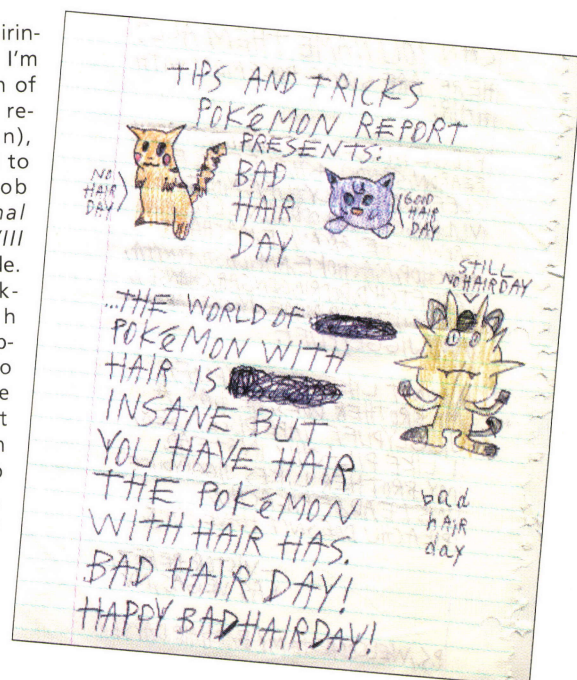 irin-
I'm
n of
re-
n),
to
ob
nal
VIII
le.
k-
h
p-
o
e
t
n
o
TIPS AND TRICKS
POKéMON REPORT
PRESENTS:
BAD
HAIR
DAY
NO
HAIR
DAY
GOOD
HAIR
DAY
STILL
NO HAIRDAY
...THE WORLD OF
POKéMON WITH
HAIR IS
INSANE BUT
YOU HAVE HAIR
THE POKéMON
WITH HAIR HAS.
BAD HAIR DAY!
HAPPY BADHAIRDAY!
bad
hAiR
day